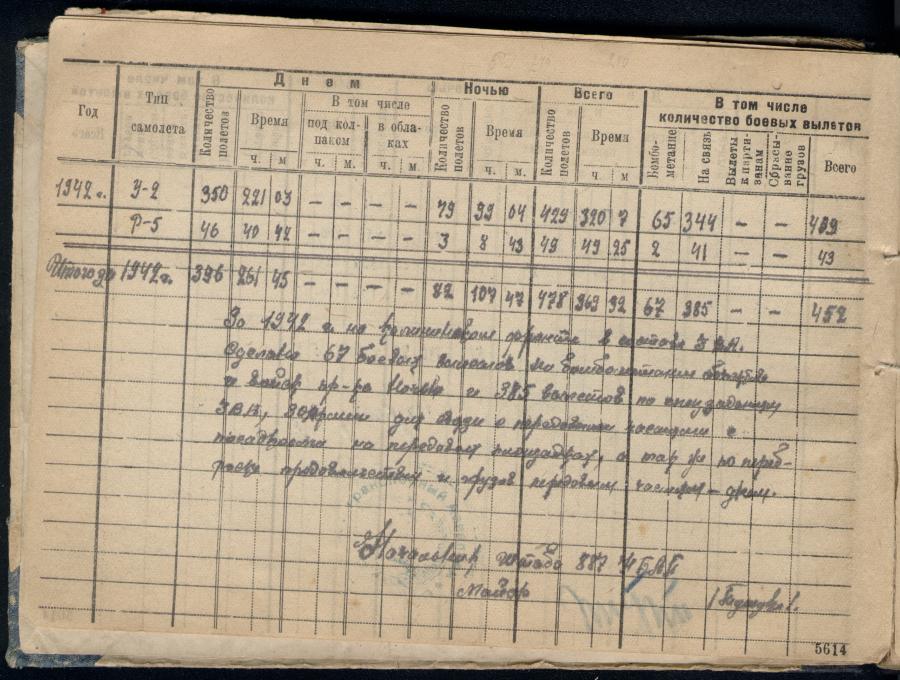 Днем Ночью Всего В том числе количество боевых вылетов
Год Тип самолета Количество полетов Время В том числе под колпаком в облаках Количество полетов Время Количество полетов Время Бомбометание На связь Вылеты к партизанам Сбрасывание грузов Всего
ч. м ч. м. ч. м. ч. м. ч. м
1942 г. У-2 350 221 03 – – – – 79 99 04 429 320 7 65 344 – – 409
Р-5 46 40 42 – – – – 3 8 43 49 49 25 2 41 – – 43
Итого за 1942 г. 396 261 45 – – – – 82 107 47 478 369 32 67 385 – – 452
За 1942 г. на Калининском фронте в составе 3 ВА.
Сделано 67 боевых вылетов на бомбометание
и войск пр-ка ночью и 385 вылетов по спецзаданиям
3ВА, для связи с передовыми частями с
посадкой на передовых площадках, а так же по переб-
роске продовольствия и грузов передовым частям – днем.
Начальник штаба 887
Майор
5614